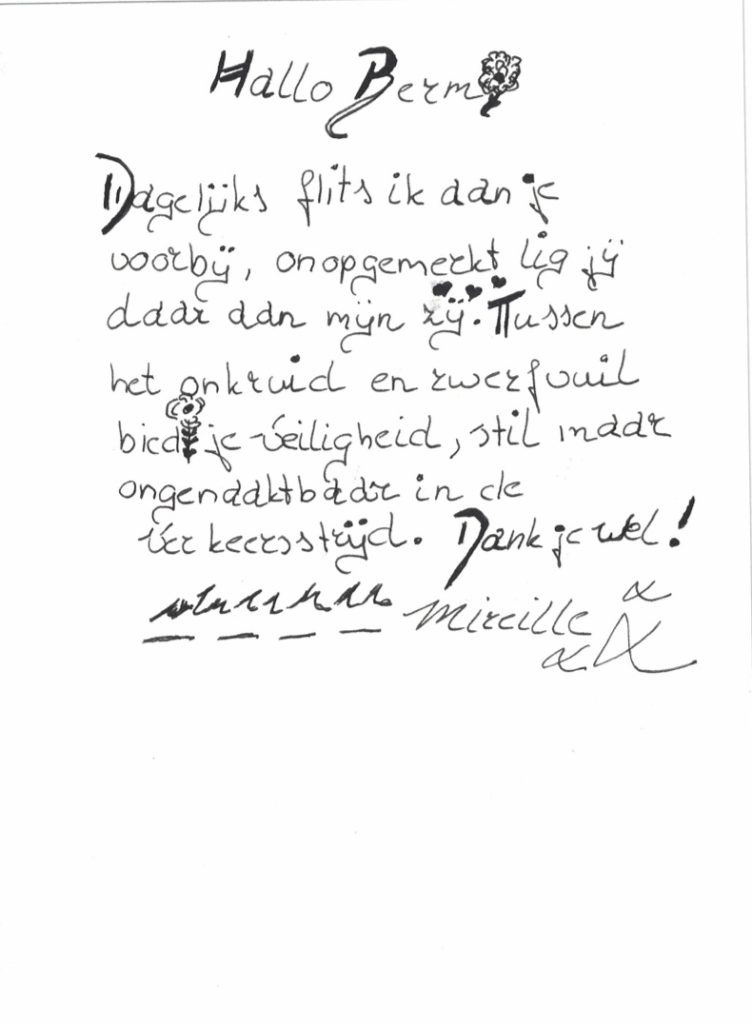 Hallo Berm
Dagelijks flits ik aan je
voorbij, onopgemerkt lig jij
daar aan mijn zij. Tussen
het onkruid en zwerfvuil
bied je veiligheid, stil maar
ongenaaktbaar in de
verkeersstrijd. Dank je wel!
Mireille